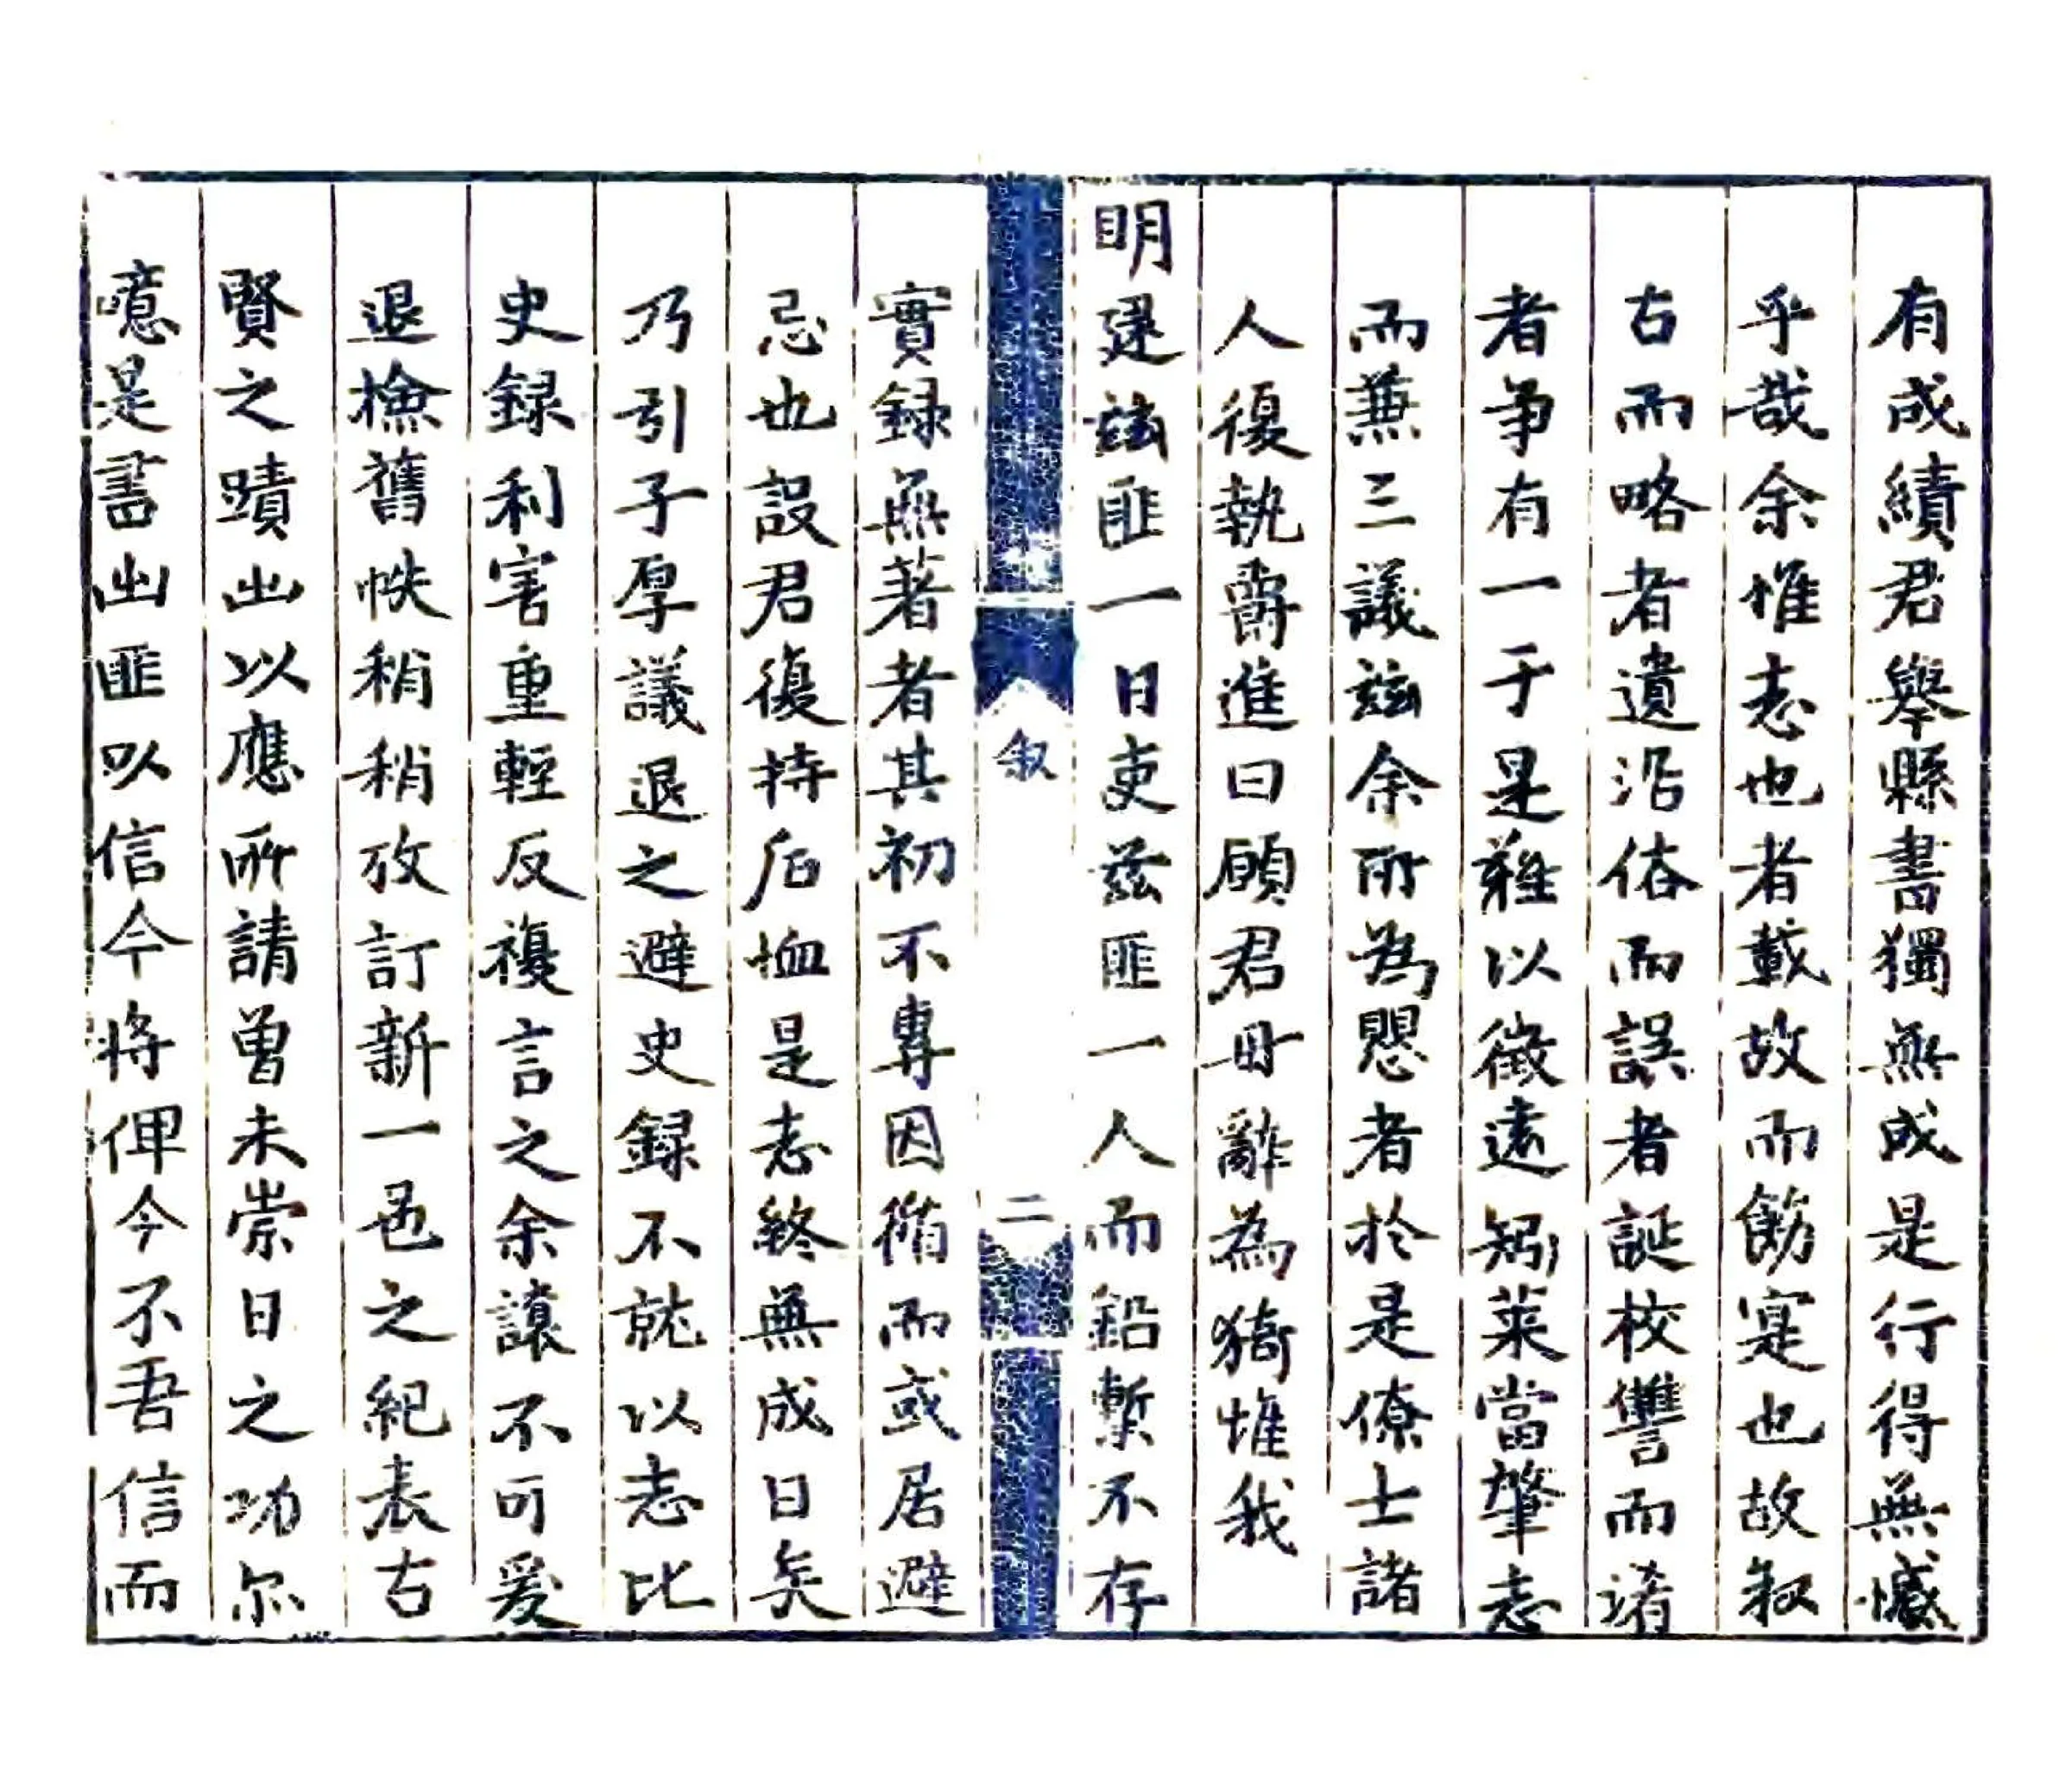 有成績君舉縣書獨無成是行得無憾
乎哉余惟志也者載故而飭寔也故叙
古而略者遺沿俗而誤者誕校讐而淆
者争有一于是難以徵遠矧萊當肇志
而兼三議兹余所為愳者於是僚士諸
人復執爵進曰願君毋辭為猗惟我
明建兹匪一日吏兹匪一人而鉛槧不存
叙
二
實録無著者其初不專因循而或居避
忌也設君復持后恤是志終無成日矣
乃引子厚議退之避史録不就以志比
史録利害重輕反複言之余讓不可爰
退撿舊帙稍稍攷訂新一邑之紀表古
賢之蹟出以應所請曾未崇日之功尔
噫是書出匪以信今将俾今不吾信而